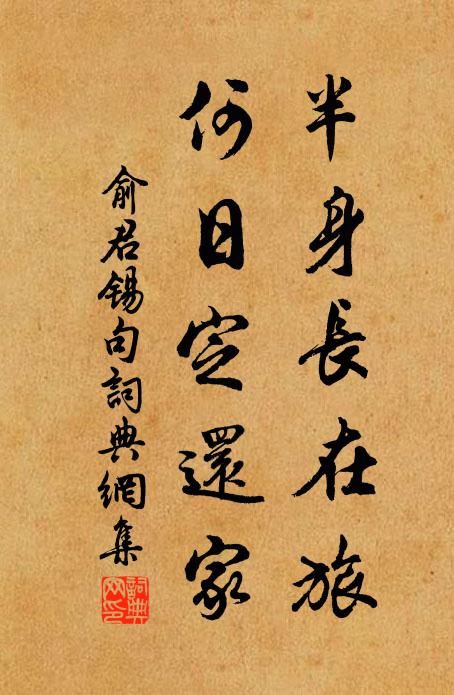 半身長在旅
何日定還家
俞君錫句詞典網集
詞典網印